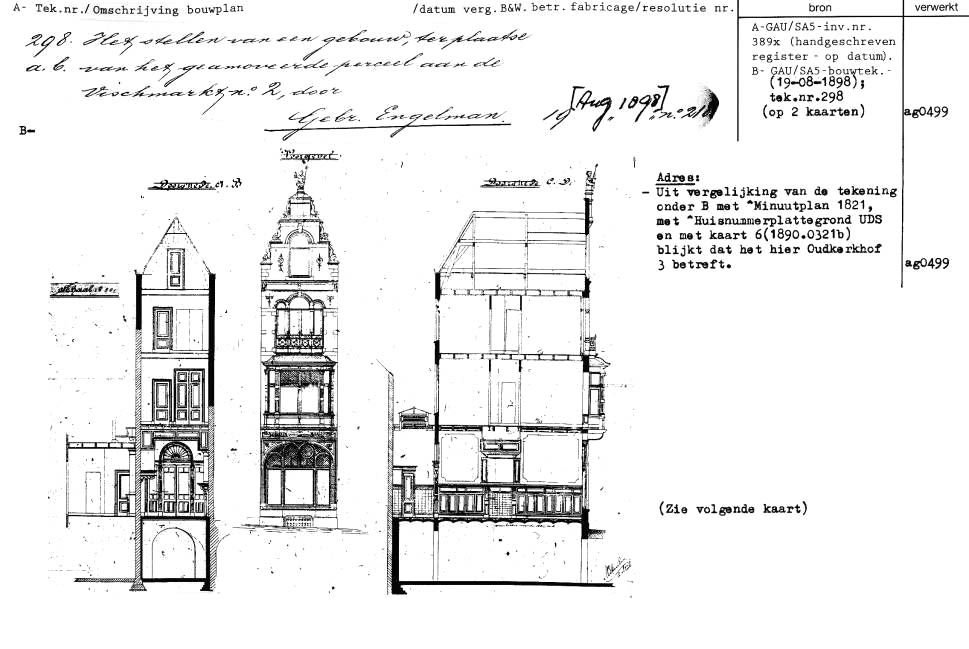 A- Tek.nr./Omschrijving bouwplan /datum verg.B&W. betr. fabricage/resolutie nr. bron verwerkt
298. Het stellen van een gebouw, ter plaatse
a. b. van het geamoveerde perceel aan de
Vischmarkt, n.º 2, door
Gebr. Engelman. 19 [Aug 1898] n.º 218
A-GAU/SA5-inv.nr.
389x (handgeschreven
register - op datum).
B- GAU/SA5-bouwtek.-
(19-08-1898);
tek.nr.298
(op 2 kaarten) ag0499
B-
Voorgevel
Doorsnede A. B
Doorsnede C. D.
Adres:
- Uit vergelijking van de tekening
onder B met ^Minuutplan 1821,
met ^Huisnummerplattegrond UDS
en met kaart 6(1890.0321b)
blijkt dat het hier Oudkerkhof
3 betreft. ag0499
(Zie volgende kaart)